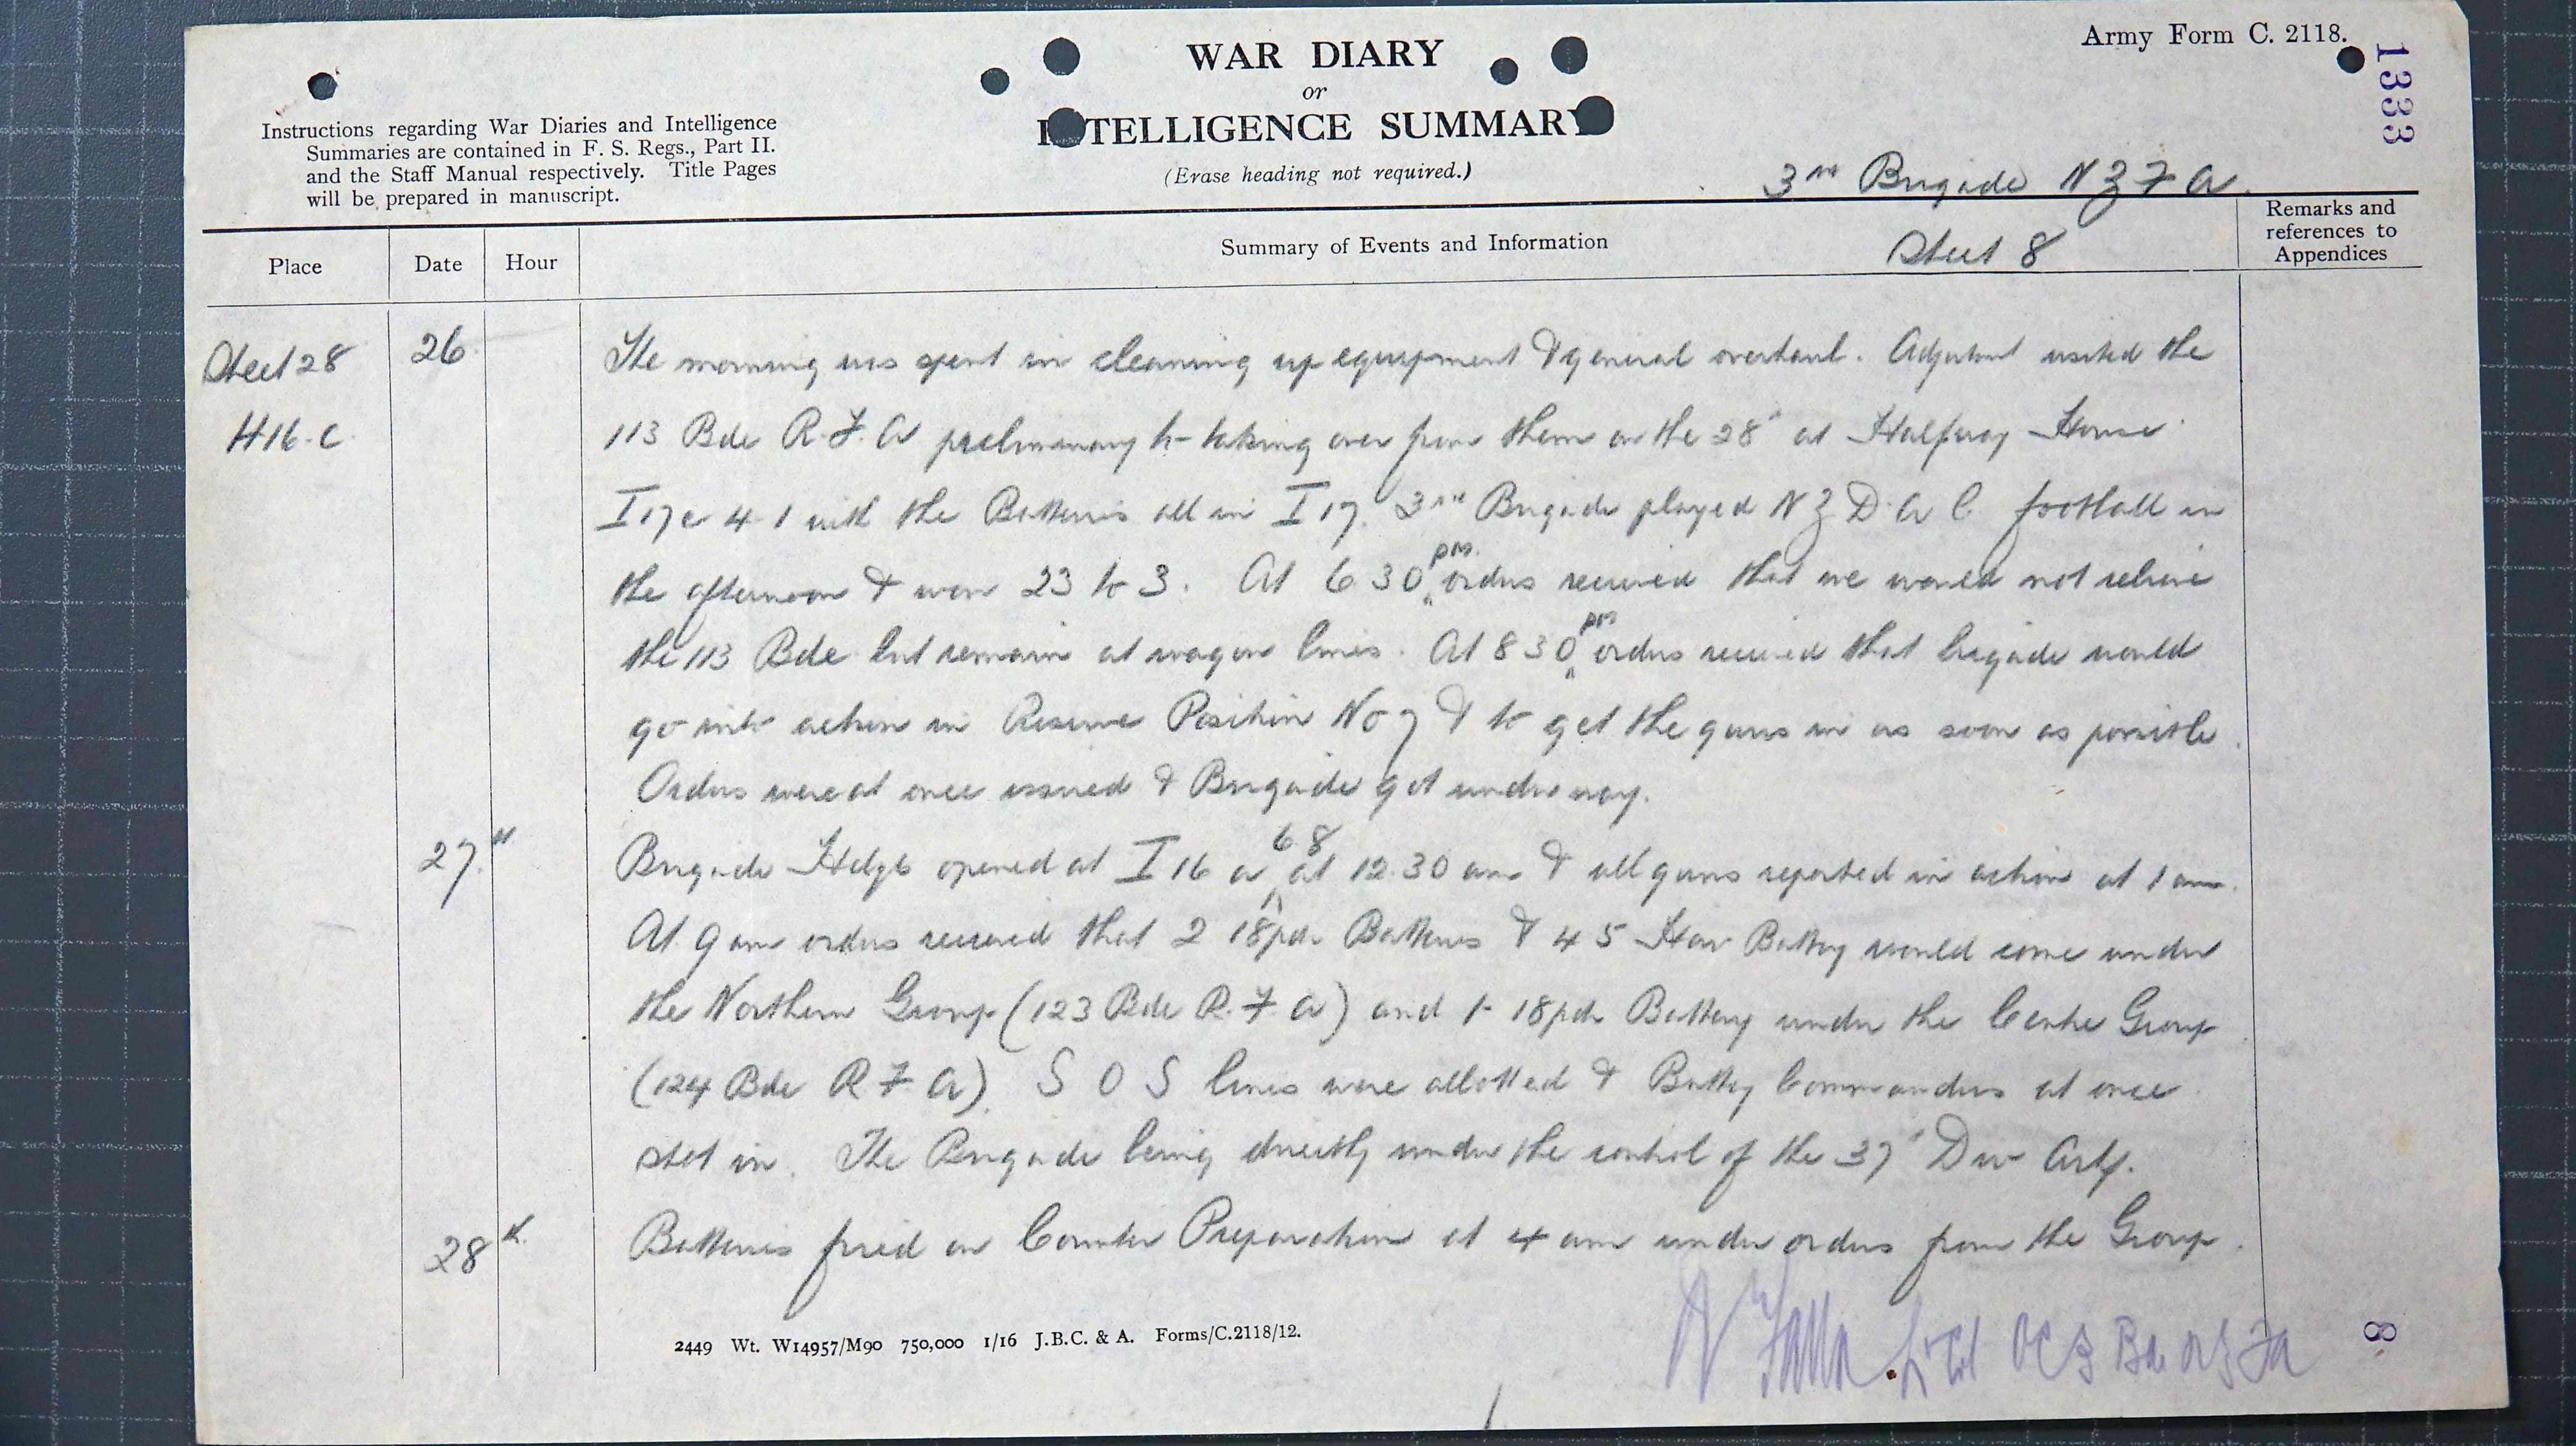 Army Form C. 2118.
1333
WAR DIARY
or
INTELLIGENCE SUMMARY
(Erase heading not required.)
Instructions regarding War Diaries and Intelligence
Summaries are contained in F. S. Regs., Part II.
and the Staff Manual respectively. Title Pages
will be prepared in manuscript.
3rd Brigade N Z F A.
Sheet 8
Place
Date
Hour
Summary of Events and Information
Remarks and
references to
Appendices
Sheet 28
H16.c
26
The morning was spent in cleaning up equipment & general overhaul. Adjutant visited the
113 Bde R.F.A preliminary to taking over from them on the 28th at Halfway House
I 17 c 4.1 with the Batteries all in I 17. 3rd Brigade played N Z D.A C. football in
the afternoon & won 23 to 3. At 6.30 pm orders received that we would not relieve
the 113 Bde but remain at wagon lines. At 8 30 pm orders received that brigade would
go into action in Reserve Position No 7 & to get the guns in as soon as possible.
Orders were at once issued & Brigade got under way.
27th
Brigade Hdqts opened at I 16 a 6 8 at 12.30 am & all guns reported in action at 1 am.
At 9 am orders received that 2 18pdr Batteries & 4 5 How Battery would come under
the Northern Group (123 Bde R.F.A) and 1- 18pdr Battery under the Centre Group
(124 Bde R F A). S O S lines were allotted & Battery Commanders at once
shot in. The Brigade being directly under the control of the 37th Div Arty.
28th
Batteries fired on Counter Preparation at 4 am under orders from the Group.
N Falla Lt Col OC 3 Bde NZFA
2449 Wt. W14957/M90 750,000 1/16 J.B.C. & A. Forms/C.2118/12.
8